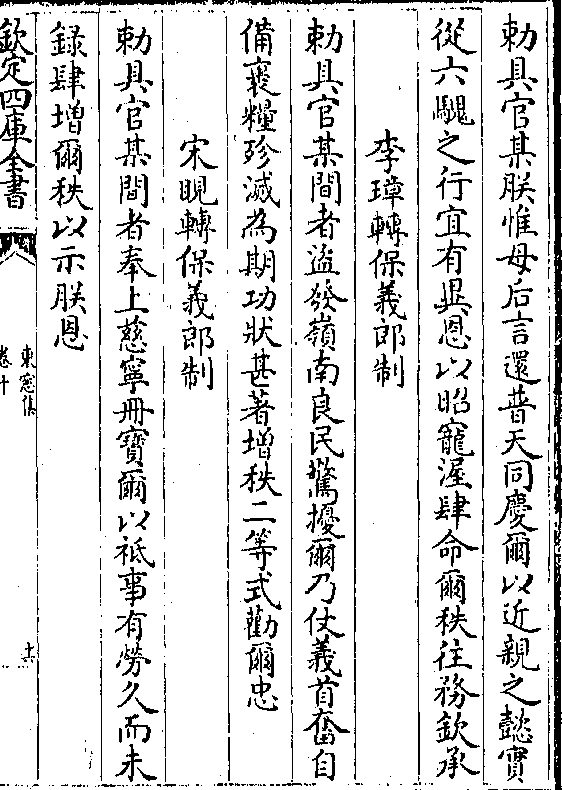 勅具官某朕惟母后言還普天同慶爾以近親之懿實
從六騩之行宜有異恩以昭寵渥肆命爾秩往務欽承
李璋轉保義郎制
勅具官某間者盜發嶺南良民驚擾爾乃仗義首奮自
備裹糧殄滅為期功狀甚著增秩二等式勸爾忠
宋晛轉保義郎制
勅具官某間者奉上慈寧冊寶爾以祗事有勞久而未
録肆增爾秩以示朕恩
欽定四庫全書
東窓集
卷十